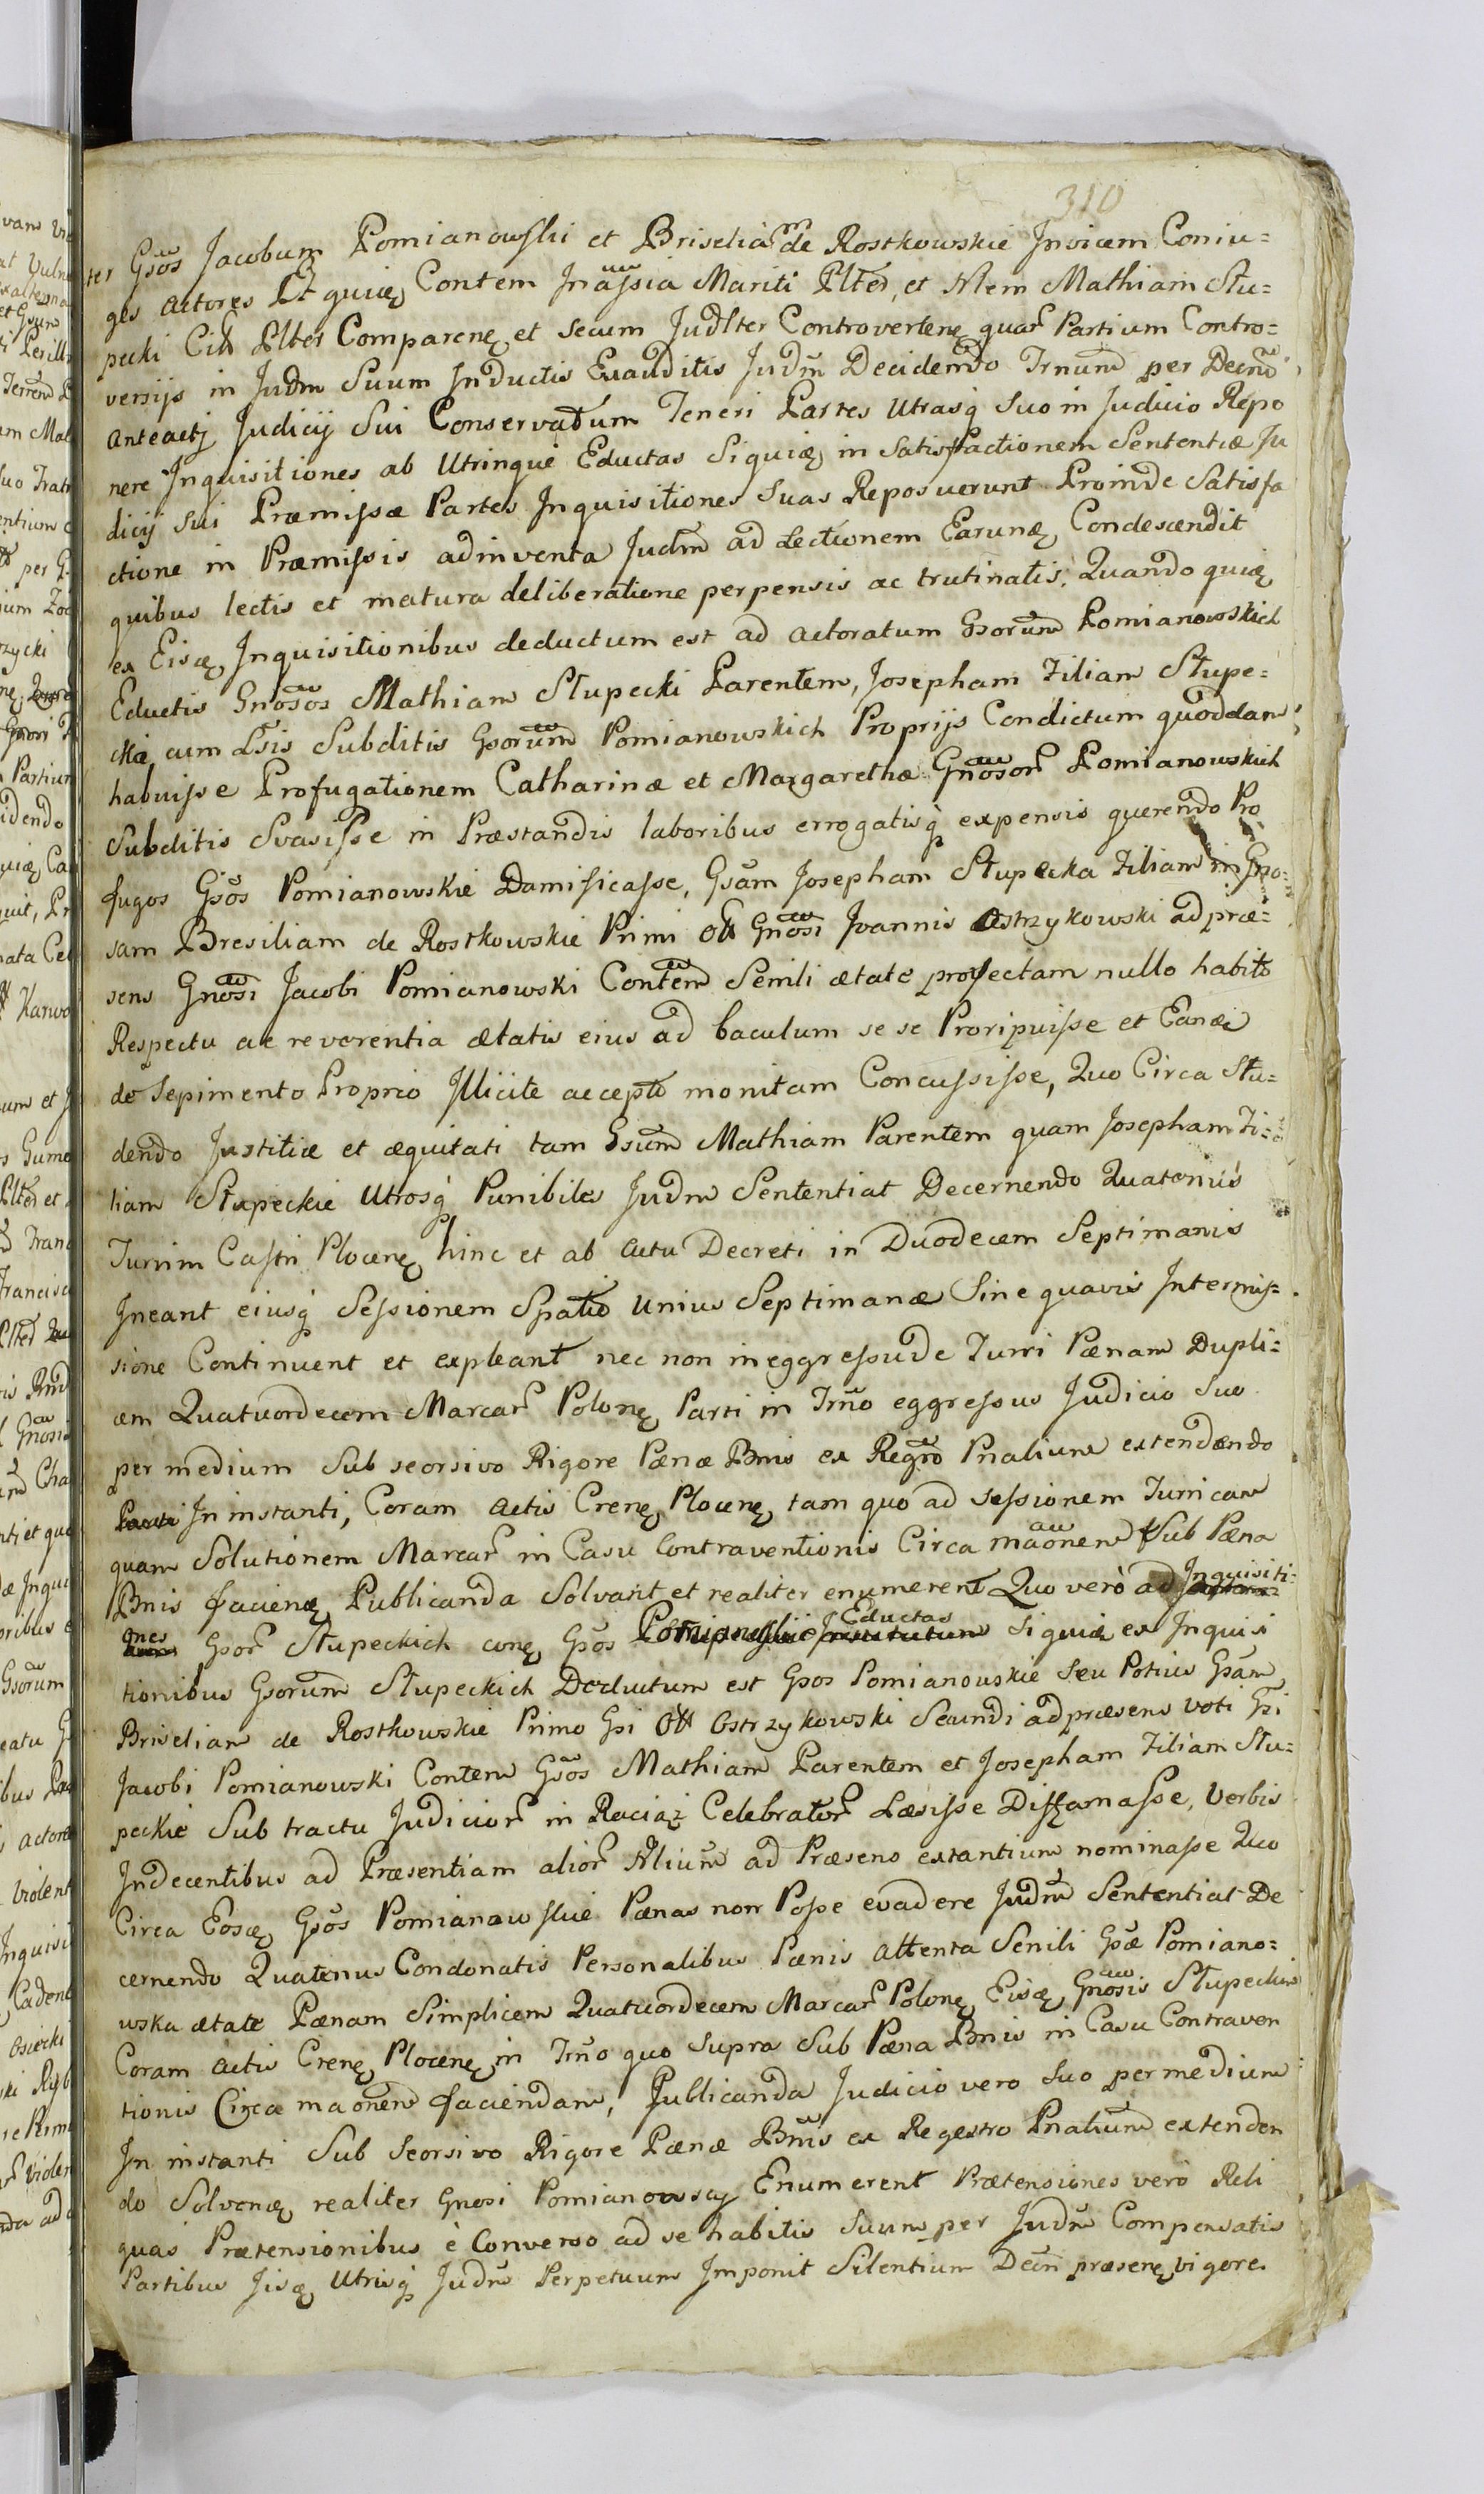 310
ter Gsos Jacobum Pomianowskii et Briseliā de Rostkowskie Invicem Coniu=
ges actores Et quiaę Contem Inassia Mariti Pltes, et Nlem Mathiam Stu=
pecki Citt Pltes Comparenę et secum Judlter Controvertenę quar Partium Contro=
versijs in Judm Suum Inductis Exauditis Judm Decidendo Trnum per Decm
anteactj Judicij Sui Conservatum Teneri Partes Utrasq suo in Judicio Repo
nere Inquisitiones ab Utrinque Eductas Siquiæ in satisfactionem Sententiæ Ju
dicij sui Præmissæ Partes Inquisitiones suas Reposuerunt Proinde Satisfa
ctione in Præmissis adinventa Judm ad Lectionem Earunę Condescendit
quibus lectis et matura deliberatione perpensis ac trutinatis, Quando quię
ex Eisę Inquisitionibus deductum est ad actoratum Gsorum Pomianowskich
Eductis Gnosos Mathiam Stupecki Parentem, Josepham Filiam Stupe=
cka cum Lsis Subditis Gsorum Pomianowskich Proprijs Condictum quoddam
habuisse Profugationem Catharinæ et Margarethæ Gnosor Pomianowskich
Subditis Svasisse in Præstandis laboribus errogatisq expensis querendo Pro
fugos Gsos Pomianowskie Damificasse, Gsam Josepham Stupecka Filiam in Gno=
sam Bresiliam de Rostkowskie Primi Ott Gnosi Joannis Ostrzykowski ad præ=
sens Gnosi Jacobi Pomianowski Contem Senili ætate provectam nullo habito
Respectu ac reverentia ætatis eius ad baculum se se Proripuisse et Eanæ
de Sepimento Proprio Illicite accepto monitam Concussisse, Quo Circa Stu=
dendo Justitiæ et æquitati tam Gsum Mathiam Parentem quam Josepham Fi=
liam Stupeckie Utrosq Punibiles Judm Sententiat Decernendo Quatenus
Turrim Castri Plocenę hinc et ab actu Decreti in Duodecem Septimanis
Ineant eiusq Sessionem Spatio Unius Septimanæ Sine quavis Intermis=
sione Continuent et expleant nec non in eggressu de Turri Pœnam Dupli=
cem Quatuordecem Marcar Polonę Parti in Trno eggressus Judicio Suo
per medium Sub seorsivo Rigore Pœnæ Bnis ex Regro Pnalium extendendo
In instanti, Coram Actis Crenę Plocenę tam quo ad Sessionem Turri cam
quam Solutionem Marcar in Casu Contraventionis Circa maonem Sub Pœna
Bnis facienę Publicanda Solvant et realiter enumerent Quo vero ad Inquisiti=
ones Gsor Stupeckich conę Gsos Pomianowskie Eductas Siquiæ ex Inquisi
tionibus Gsorum Stupeckich Deductum est Gsos Pomianowskie seu Potius Gsam
Briseliam de Rostkowskie Primo Gsi Ott Ostrzykowski Secundi ad præsens voti Gsi
Jacobi Pomianowski Contem Gsos Mathiam Parentem et Josepham Filiam Stu=
peckie Sub tractu Judicior in Raciąż Celebrator Læsisse Diffamasse, Verbis
Indecentibus ad Præsentiam alior Nlium ad Præsens extantium nominasse Quo
Circa Eosę Gsos Pomianowskie Pœnas non Posse evadere Judm Sententiat De
cernendo Quatenus Condonatis Personalibus Pœnis attenta Senili Gsæ Pomiano=
wska ætate Pœnam Simplicem Quatuordecem Marcar Polonę Eisę Gnosis Stupeckim
Coram actis Crenę Plocenę in Trno quo supra Sub Pœna Bnis in Casu Contraven
tionis Circa maonem faciendam, Publicanda Judicio vero suo per medium
In instanti Sub Seorsivo Rigore Pœnæ Bnis ex Regestro Pnalium extenden
do Solvenę realiter Gnosi Pomianowscy Enumerent Prætensiones vero Reli
quas Prætensionibus è Converso ad se habitis Suum per Judm Compensatis
Partibus Iisę Utrisq Judm Perpetuum Imponit Silentium Decri præsenę vigore